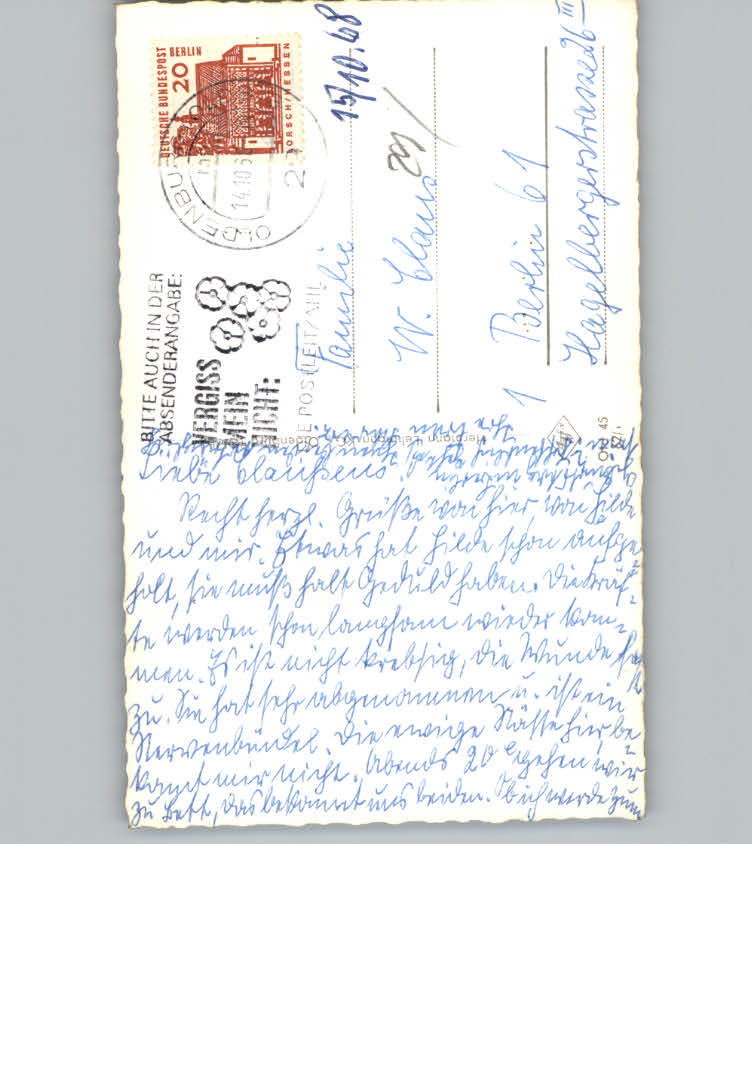 DEUTSCHE BUNDESPOST BERLIN
20
LORSCH/HESSEN
OLDENBURG
14.10.6
15/10.68
BITTE AUCH IN DER
ABSENDERANGABE:
VERGISS
MEIN
NICHT:
DIE POSTLEITZAHL
Familie
W. Claus
1 Berlin 61
Hagelbergerstrasse 26 III
Hermann Lehmann KG, Oldenburg
Old 45
Liebe Claussens!
Recht herzl. Grüße von hier, von Hilde
und mir. Etwas hat Hilde schon aufge-
holt, sie muß halt Geduld haben. Die Kräf-
te werden schon langsam wieder kom-
men. Es ist nicht krebsig, die Wunde ist
zu. Sie hat sehr abgenommen u. ist ein
Nervenbündel. Die ewige Nässe hier, be-
kommt mir nicht. Abends 20 gehen wir
zu Bett, das bekommt uns beiden. Ob ich werde zum